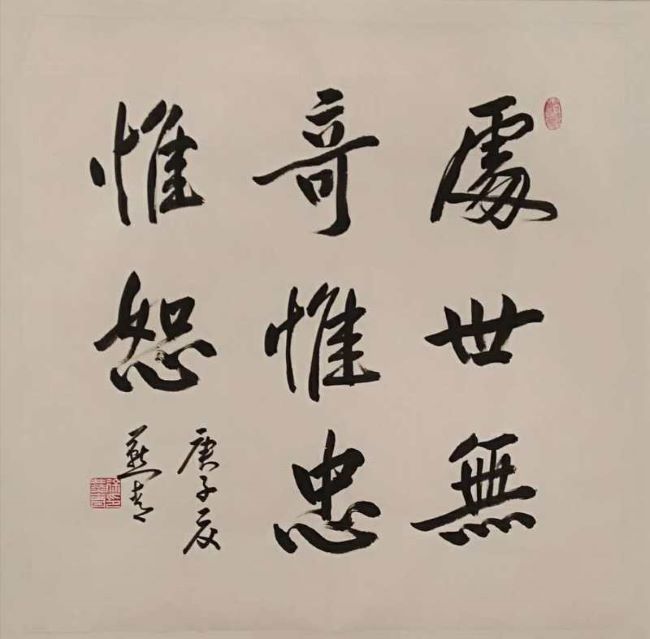 處世無
竒惟忠
惟恕
庚子夏